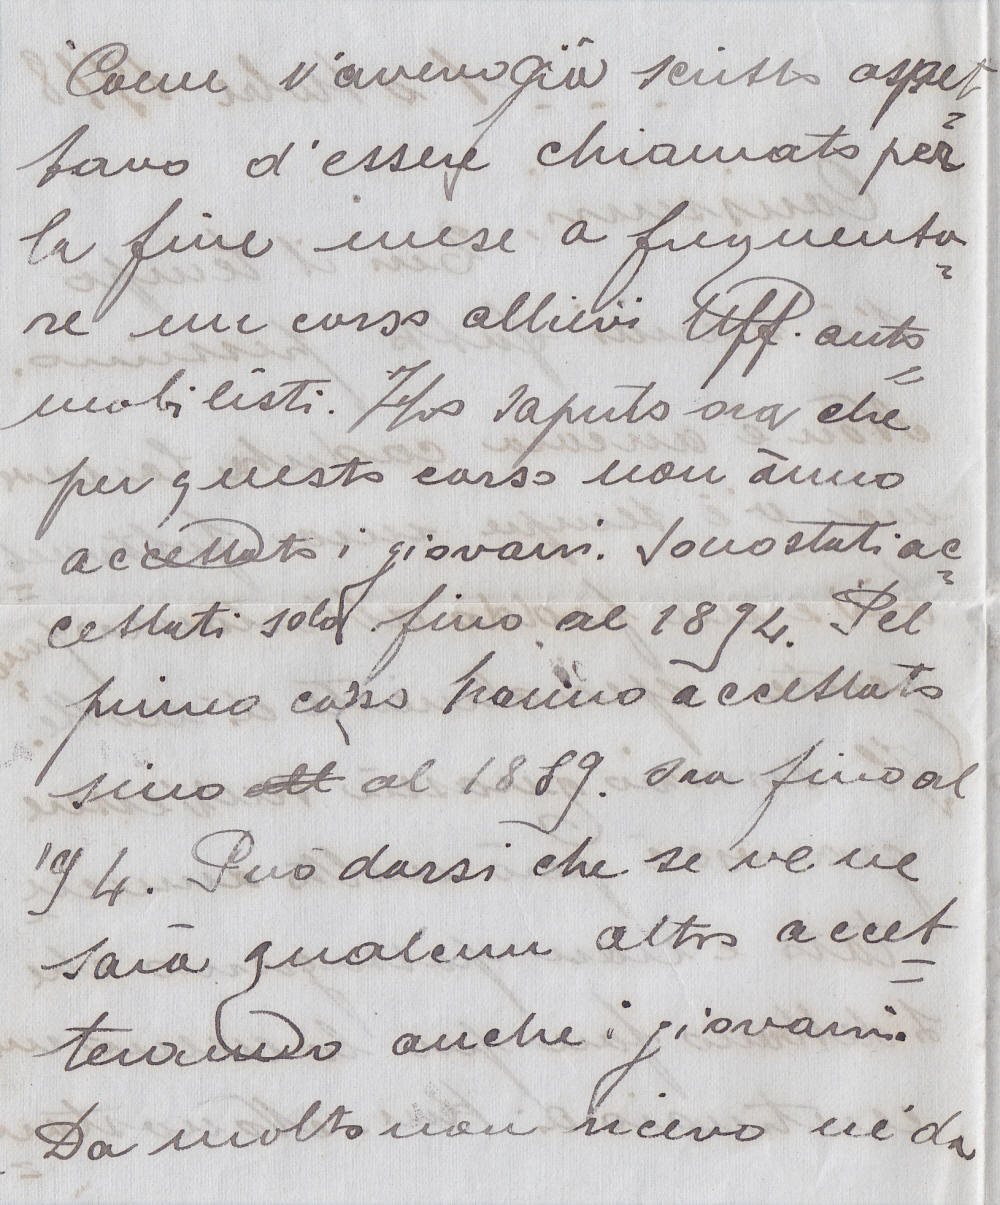 Come v'avevo già scritto aspet
tavo d'essere chiamato per
la fine mese a frequenta
re un corso allievi Uff. auto
mobilisti. Ho saputo ora che
per questo corso non ànno
accettato i giovani. Sono stati ac
cettati solo fino al 1894. Pel
primo corso hanno accettato
sino al 1889. ora fino al
'94. Può darsi che se ve ne
sarà qualcun altro accet
teranno anche i giovani.
Da molto non ricevo né da